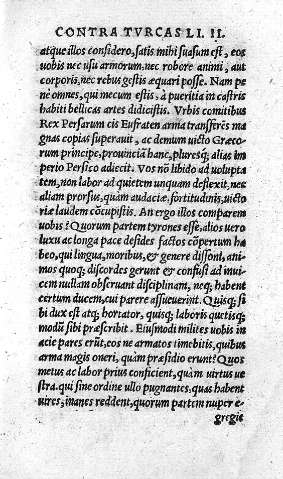 CONTRA TVRCAS LI. II.
atque illos considero, satis mihi suasum est, eos
uobis nec usu armorum, nec robore animi, aut
corporis, nec rebus gestis æquari posse. Nam pe
ne omnes, qui mecum estis, à pueritia in castris
habiti bellicas artes didicistis. Vrbis comitibus
Rex Persarum cis Eufraten arma transferēs ma
gnas copias superauit, ac demum uicto Græco-
rum principe, prouinciā hanc, pluresq; alias im
perio Persico adiecit. Vos nō libido ad uolupta
tem, non labor ad quietem unquam deflexit, nec
aliam prorsus, quàm audaciæ, fortitudinis, uicto
riæ laudem cōcupistis. An ergo illos comparem
uobis? Quorum partem tyrones esse, alios uero
luxu ac longa pace desides factos cōpertum ha
beo, qui lingua, moribus, & genere dissoni, ani-
mos quoq; discordes gerunt & confusi ad inui-
cem nullam obseruant disciplinam, neq; habent
certum ducem, cui parere assueuerint. Quisq; si
bi dux est atq; hortator, quisq; laboris quietisq;
modū sibi præscribit. Eiusmodi milites uobis in
acie pares erūt, eos ne armatos timebitis, quibus
arma magis oneri, quàm præsidio erunt? Quos
metus ac labor prius conficient, quàm uirtus ue
stra. qui sine ordine ullo pugnantes, quas habent
uires, inanes reddent, quorum partem nuper e-
gregie